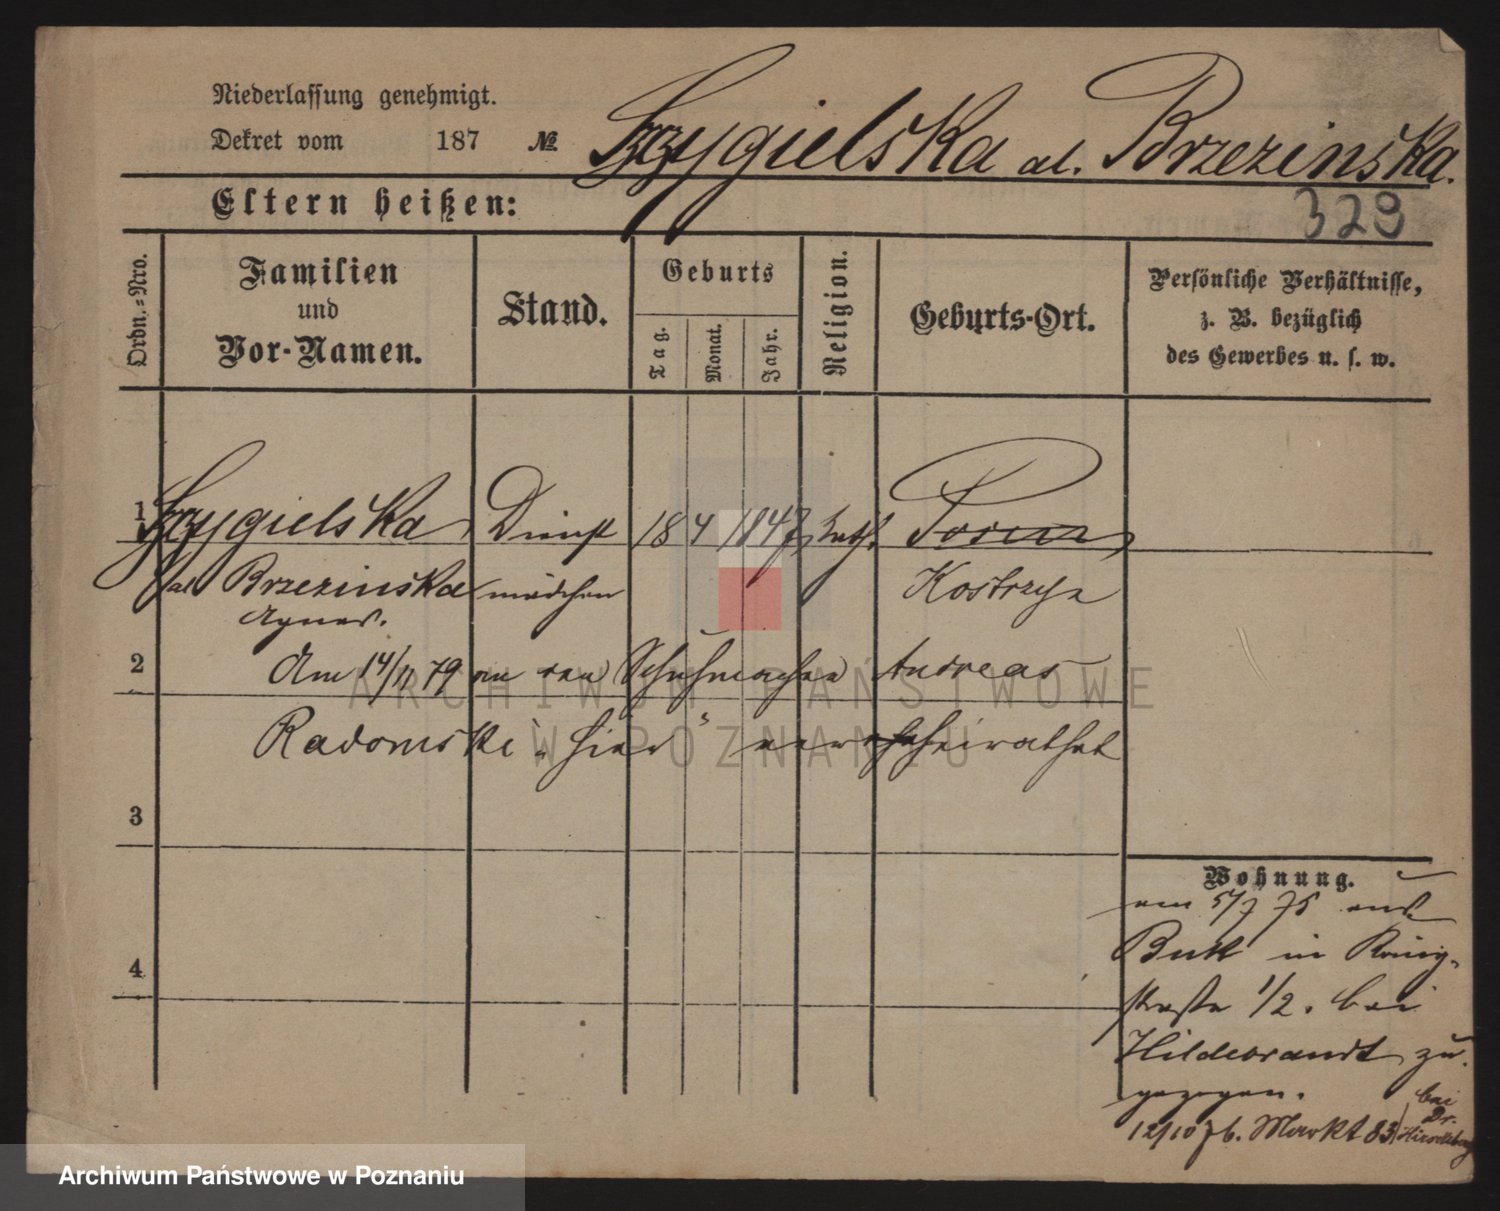 Niederlassung genehmigt.
Dekret vom 187 №
Szzygielska al. Brzezinska.
Eltern heißen:
329
Ordn.-Nro.
Familien
und
Vor-Namen.
Stand.
Geburts
Tag.
Monat.
Jahr.
Religion.
Geburts-Ort.
Persönliche Verhältnisse,
z. B. bezüglich
des Gewerbes u. s. w.
1 Szzygielska Dienst 18 4 1847 kath. Posen
al Brzezinska mädchen Kostrzyn
Agnes.
2 Am 14/11 79 an den Schuhmacher Andreas
Radomski "hier" verheirathet
3
4
Wohnung.
am 5/7 75 aus
Buk in König-
straße 1/2. bei
Hildebrandt zu-
gezogen.
12/10 76. Markt 83 bei
Dr.
ARCHIWUM PAŃSTWOWE
W POZNANIU
Archiwum Państwowe w Poznaniu